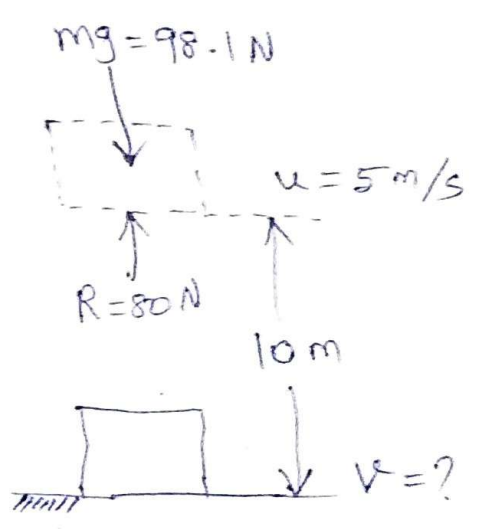 mg = 98.1 N
u = 5 m/s
R = 80 N
10 m
v = ?